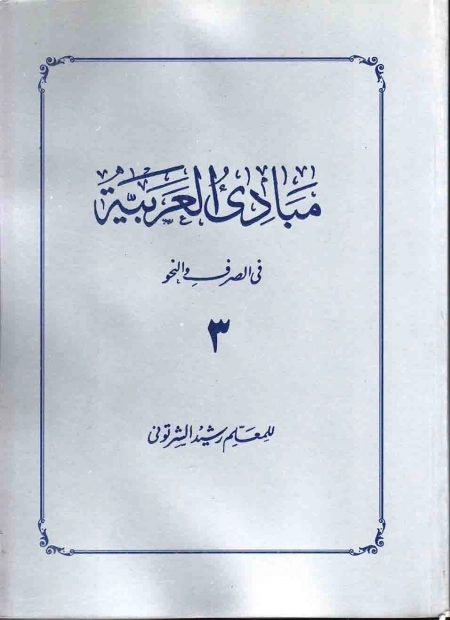 مَبَادِئُ العَرَبِيَّة
فی الصرف والنحو
۳
للمعلّم رشيد الشرتونی